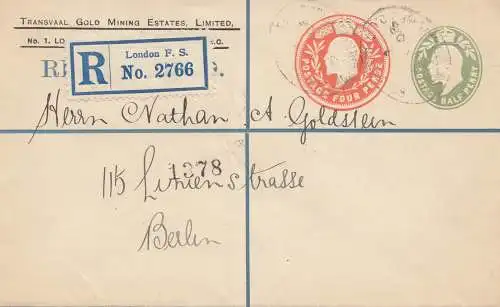 TRANSVAAL GOLD MINING ESTATES, LIMITED,
No. 1, LO
R
London F. S.
No. 2766
POSTAGE FOUR PENCE
POSTAGE HALF PENNY
Herrn Nathan A. Goldstein
1378
115 Linienstrasse
Berlin